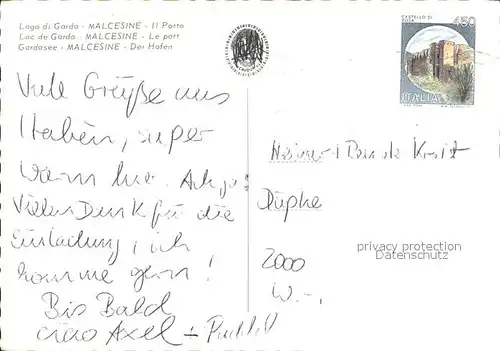 Lago di Garda - MALCESINE - Il Porto
Lac de Garda - MALCESINE - Le port
Gardasee - MALCESINE - Der Hafen
CASTELLO DI
450
ITALIA
Viele Grüße aus
Italien, super
warm hier. Ach ja!
Vielen Dank für die
Einladung, ich
komme gern!
Bis Bald
ciao Axel +
2000
W.-,
privacy protection
Datenschutz